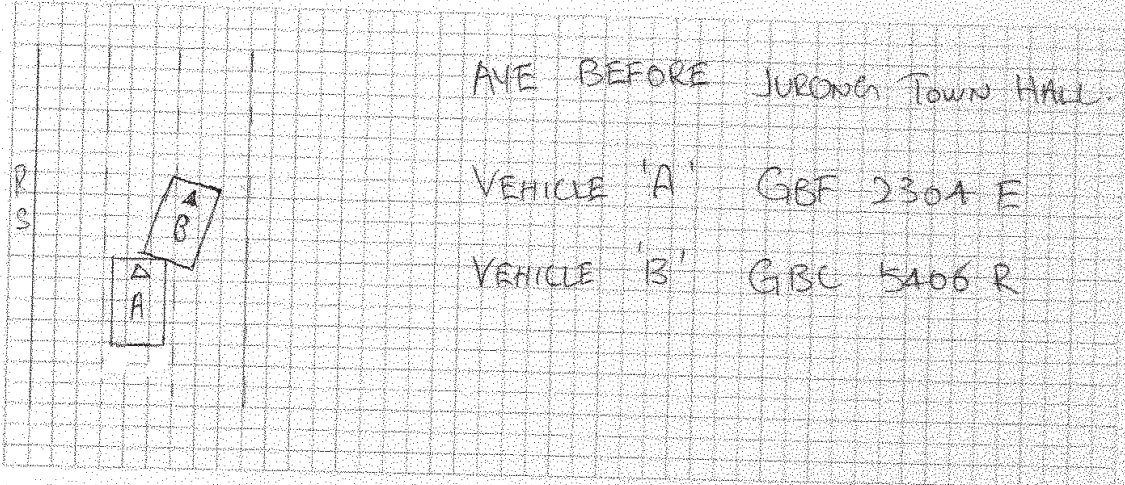 AYE BEFORE JURONG TOWN HALL.
R
S
VEHICLE 'A' GBF 2304 E
VEHICLE 'B' GBC 5406 R
B
A